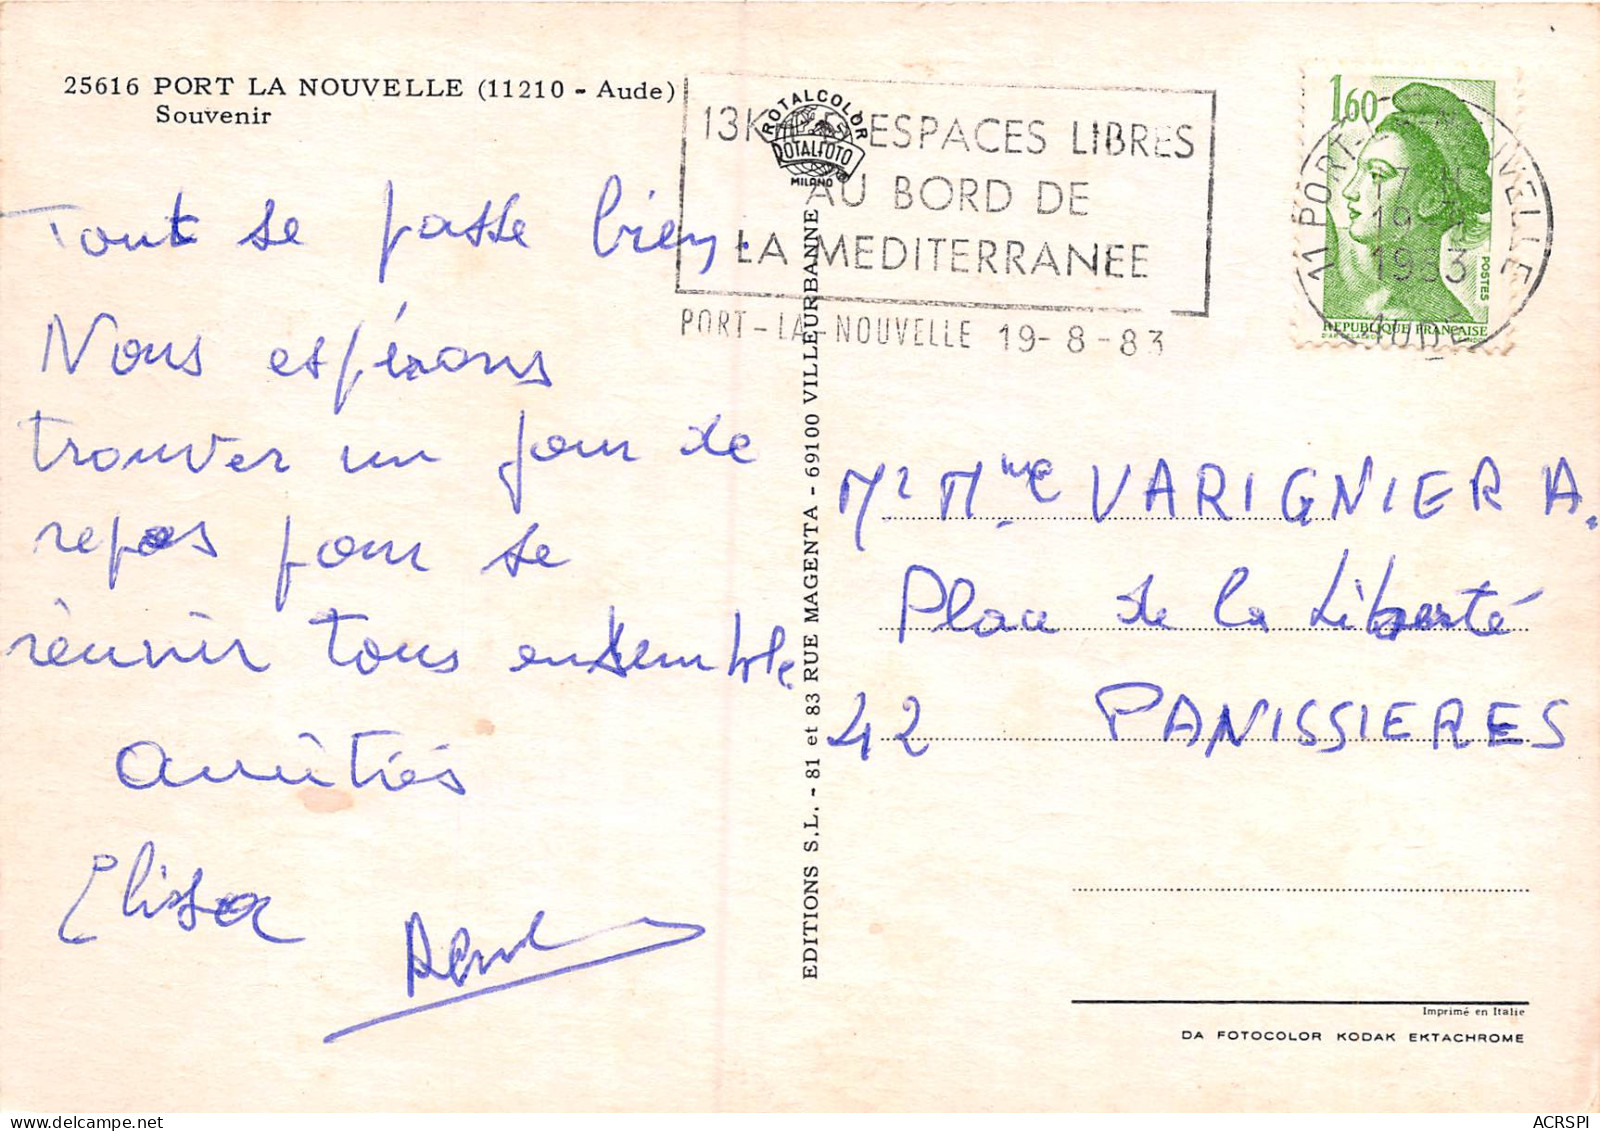 25616 PORT LA NOUVELLE (11210 - Aude)
Souvenir
ROTALCOLOR
ROTALFOTO
MILANO
ESPACES LIBRES
AU BORD DE
LA MEDITERRANEE
PORT-LA NOUVELLE 19-8-83
1,60
POSTES
REPUBLIQUE FRANÇAISE
11 PORT-LA NOUVELLE
17 H
19 - 8
1983
AUDE
Tout se passe bien.
Nous espérons
trouver un jour de
repos pour se
réunir tous ensemble.
amitiés
Elissa
EDITIONS S.L. - 81 et 83 RUE MAGENTA - 69100 VILLEURBANNE
Mr Mme VARIGNIER A.
Place de la Liberté
42 PANISSIERES
Imprimé en Italie
DA FOTOCOLOR KODAK EKTACHROME
ACRSPI